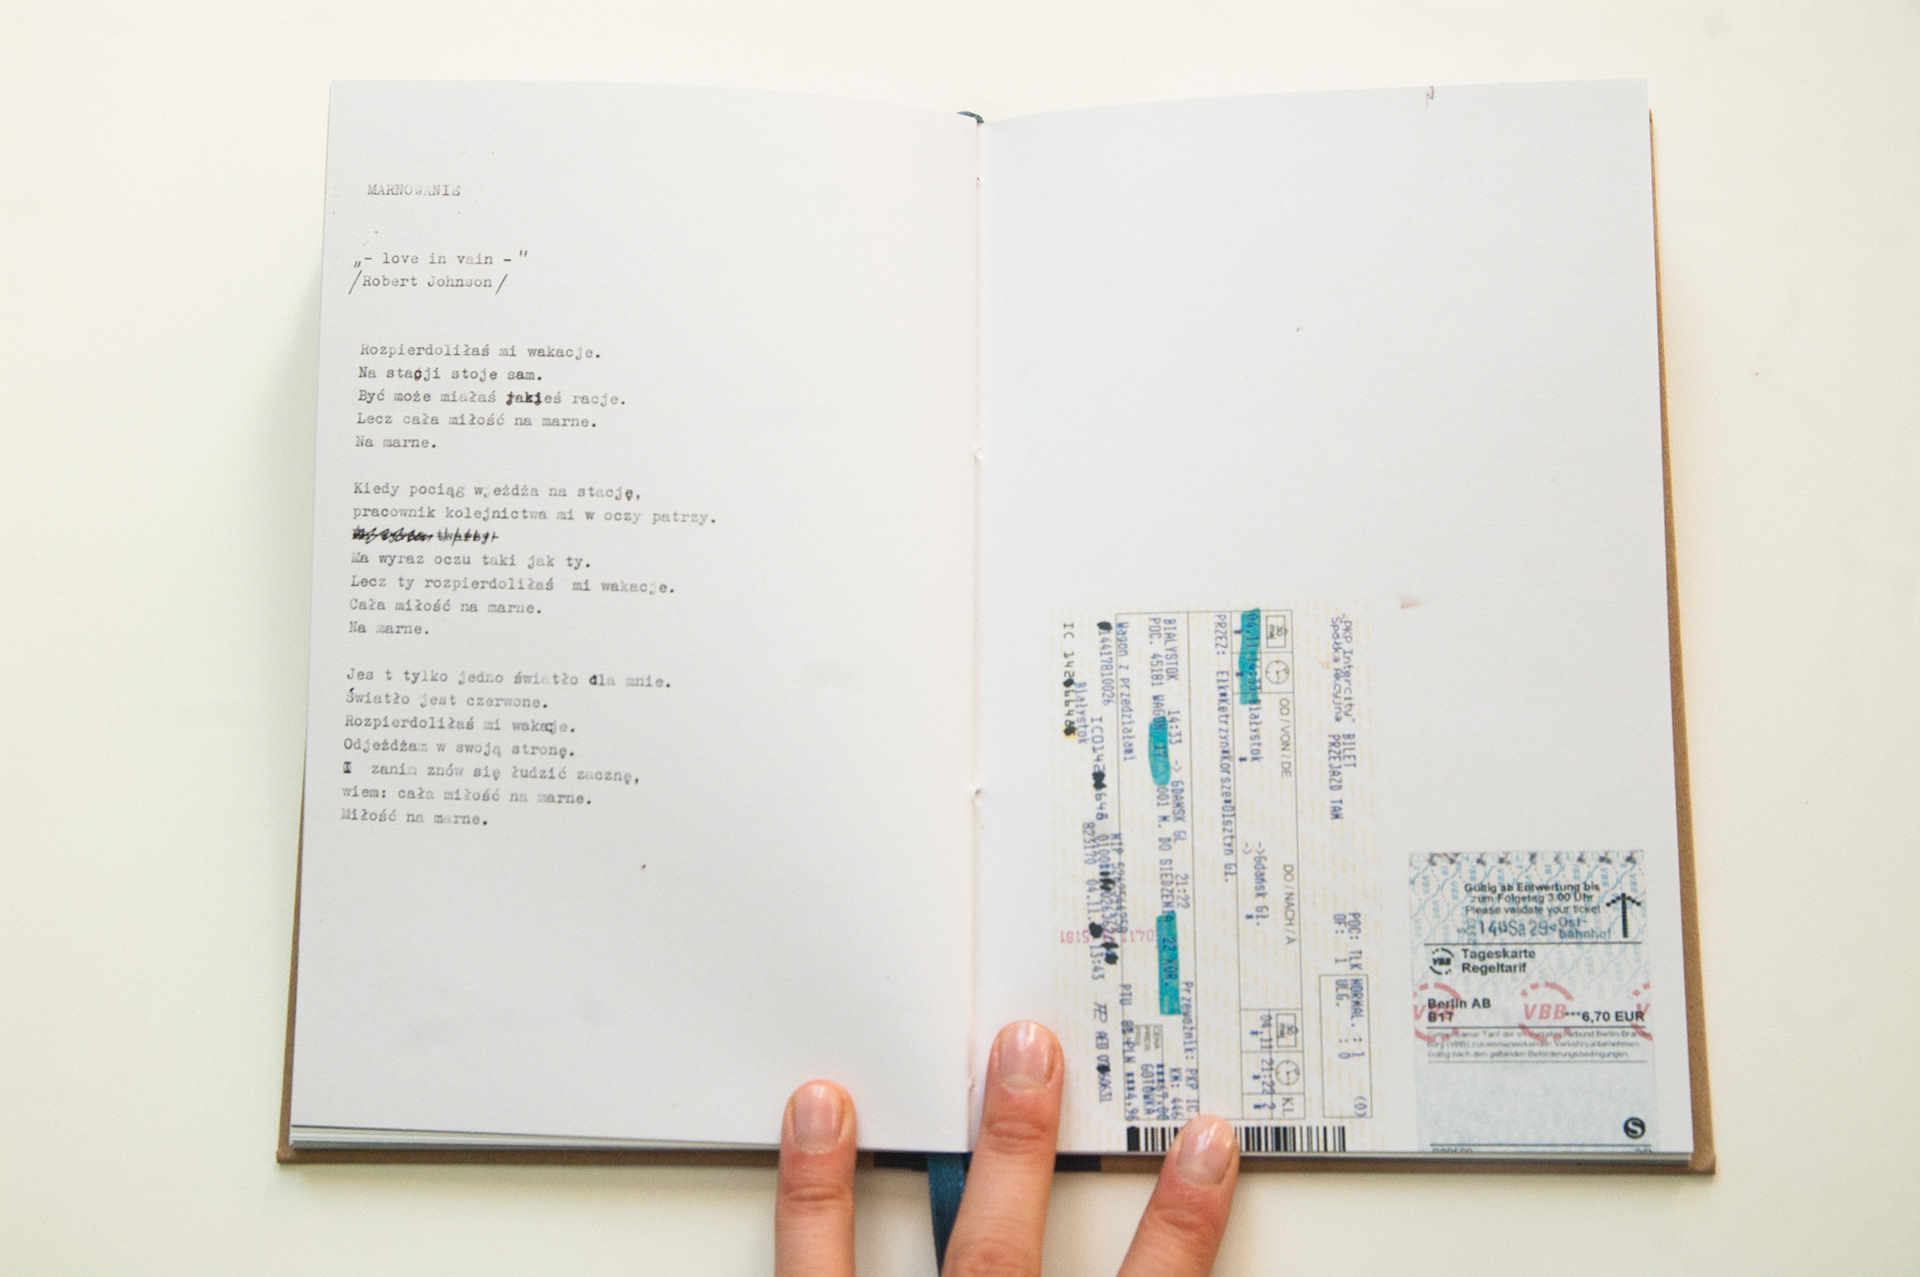 MARNOWANIE
„- love in vain - "
/Robert Johnson/
Rozpierdoliłaś mi wakacje.
Na stacji stoje sam.
Być może miałaś jakieś racje.
Lecz cała miłość na marne.
Na marne.
Kiedy pociąg wjeżdża na stację,
pracownik kolejnictwa mi w oczy patrzy.
Ma wyraz oczu taki jak ty.
Lecz ty rozpierdoliłaś mi wakacje.
Cała miłość na marne.
Na marne.
Jes t tylko jedno światło dla mnie.
Światło jest czerwone.
Rozpierdoliłaś mi wakacje.
Odjeżdżam w swoją stronę.
I zanim znów się łudzić zacznę,
wiem: cała miłość na marne.
Miłość na marne.
"PKP Intercity" BILET
Spółka Akcyjna PRZEJAZD TAM
POC: TLK NORMAL. : 1
OF: 1 ULG. : 0
(0)
OD / VON / DE
DO / NACH / A
KL
Białystok
->Gdańsk Gł.
04.11 21:22 2
PRZEZ: Ełk*Kętrzyn*Korsze*Olsztyn Gł.
BIAŁYSTOK 14:33 -> GDAŃSK GŁ 21:22
Przewoźnik: PKP IC
POC. 45181
KM: 446
Wagon z przedziałami
CENA
GOTÓWKA
PTU
Białystok
04.11
13:43
Gültig ab Entwertung bis
zum Folgetag 3:00 Uhr
Please validate your ticket
Ost-
bahnhof
VBB Tageskarte
Regeltarif
Berlin AB
B17
VBB
***6,70 EUR
S